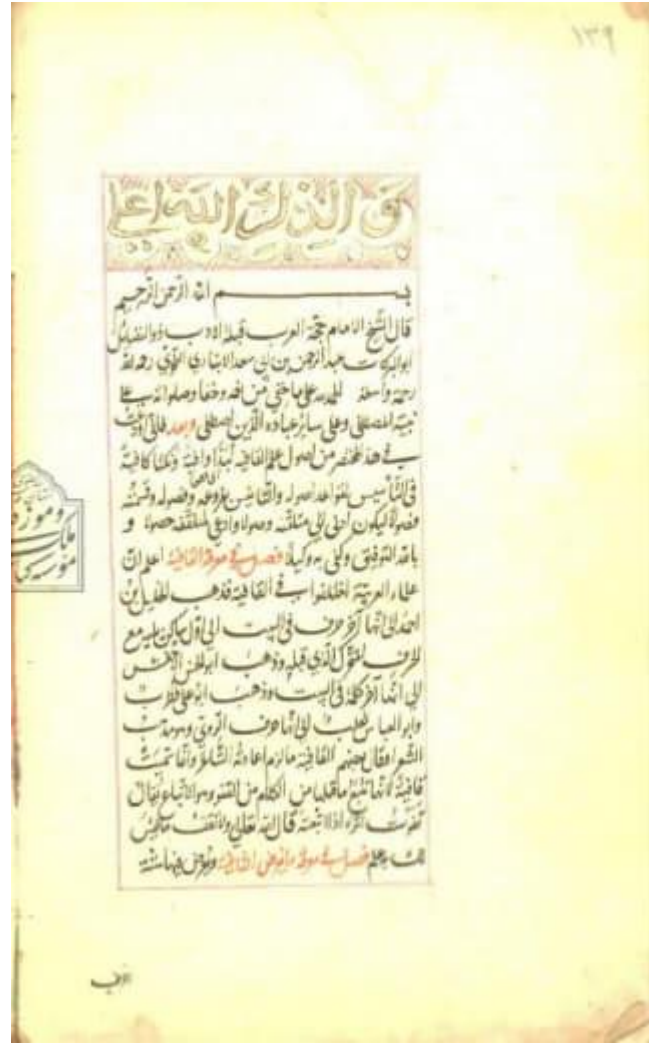 ١٣٩
بسم الله الرحمن الرحيم
قال الشيخ الامام حجة العرب قبلة الادب ذو الفضائل
ابو البركات عبد الرحمن بن ابي سعد الانباري النحوي رحمه الله
رحمة واسعة الحمد لله على ما منحني من وصلواته على
نبيه المصطفى وعلى سائر عباده الذين اصطفى وبعد فلقد اودعت
في هذا المختصر من اصول علم القافية نبذا وافية ونكتا كافية
في التأسيس لقواعد اصوله والتأسيس بفروعه وفصوله وقسمته
فصولا ليكون ادنى الى متلقنه وصولا وادنى لمتلقفه حصولا و
بالله التوفيق وكفى به وكيلا فصل في معرفة القافية اعلم ان
علماء العربية اختلفوا في القافية فذهب الخليل بن
احمد الى انها آخر حرف في البيت الى اول ساكن يليه مع
الحرف المتحرك الذي قبله وذهب ابو الحسن الاخفش
الى انها آخر كلمة في البيت وذهب ابو علي قطرب
وابو العباس ثعلب الى انها حرف الروي وهو مذهب
الشعراء وقال بعضهم القافية ما لزم اعادته الشاعر وانما سميت
قافية لانها تتبع ما قبلها من الكلام من القفو وهو الاتباع يقال
قفوت اثره اذا اتبعته قال الله تعالى ولا تقف ما ليس
لك به علم فصل في معرفة ما في القافية
وموزه
ملك
مؤسسه